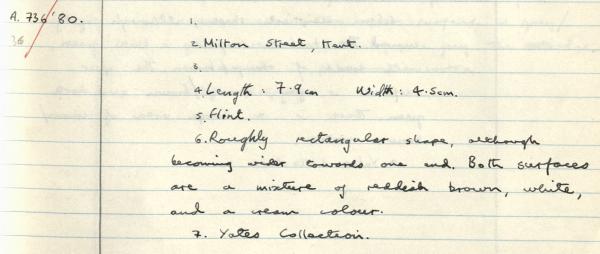 A. 736'80. 1.
36 2. Milton Street, Kent.
3.
4. Length: 7.9cm Width: 4.5cm.
5. Flint.
6. Roughly rectangular shape, although
becoming wider towards one end. Both surfaces
are a mixture of reddish brown, white,
and a cream colour.
7. Yates Collection.